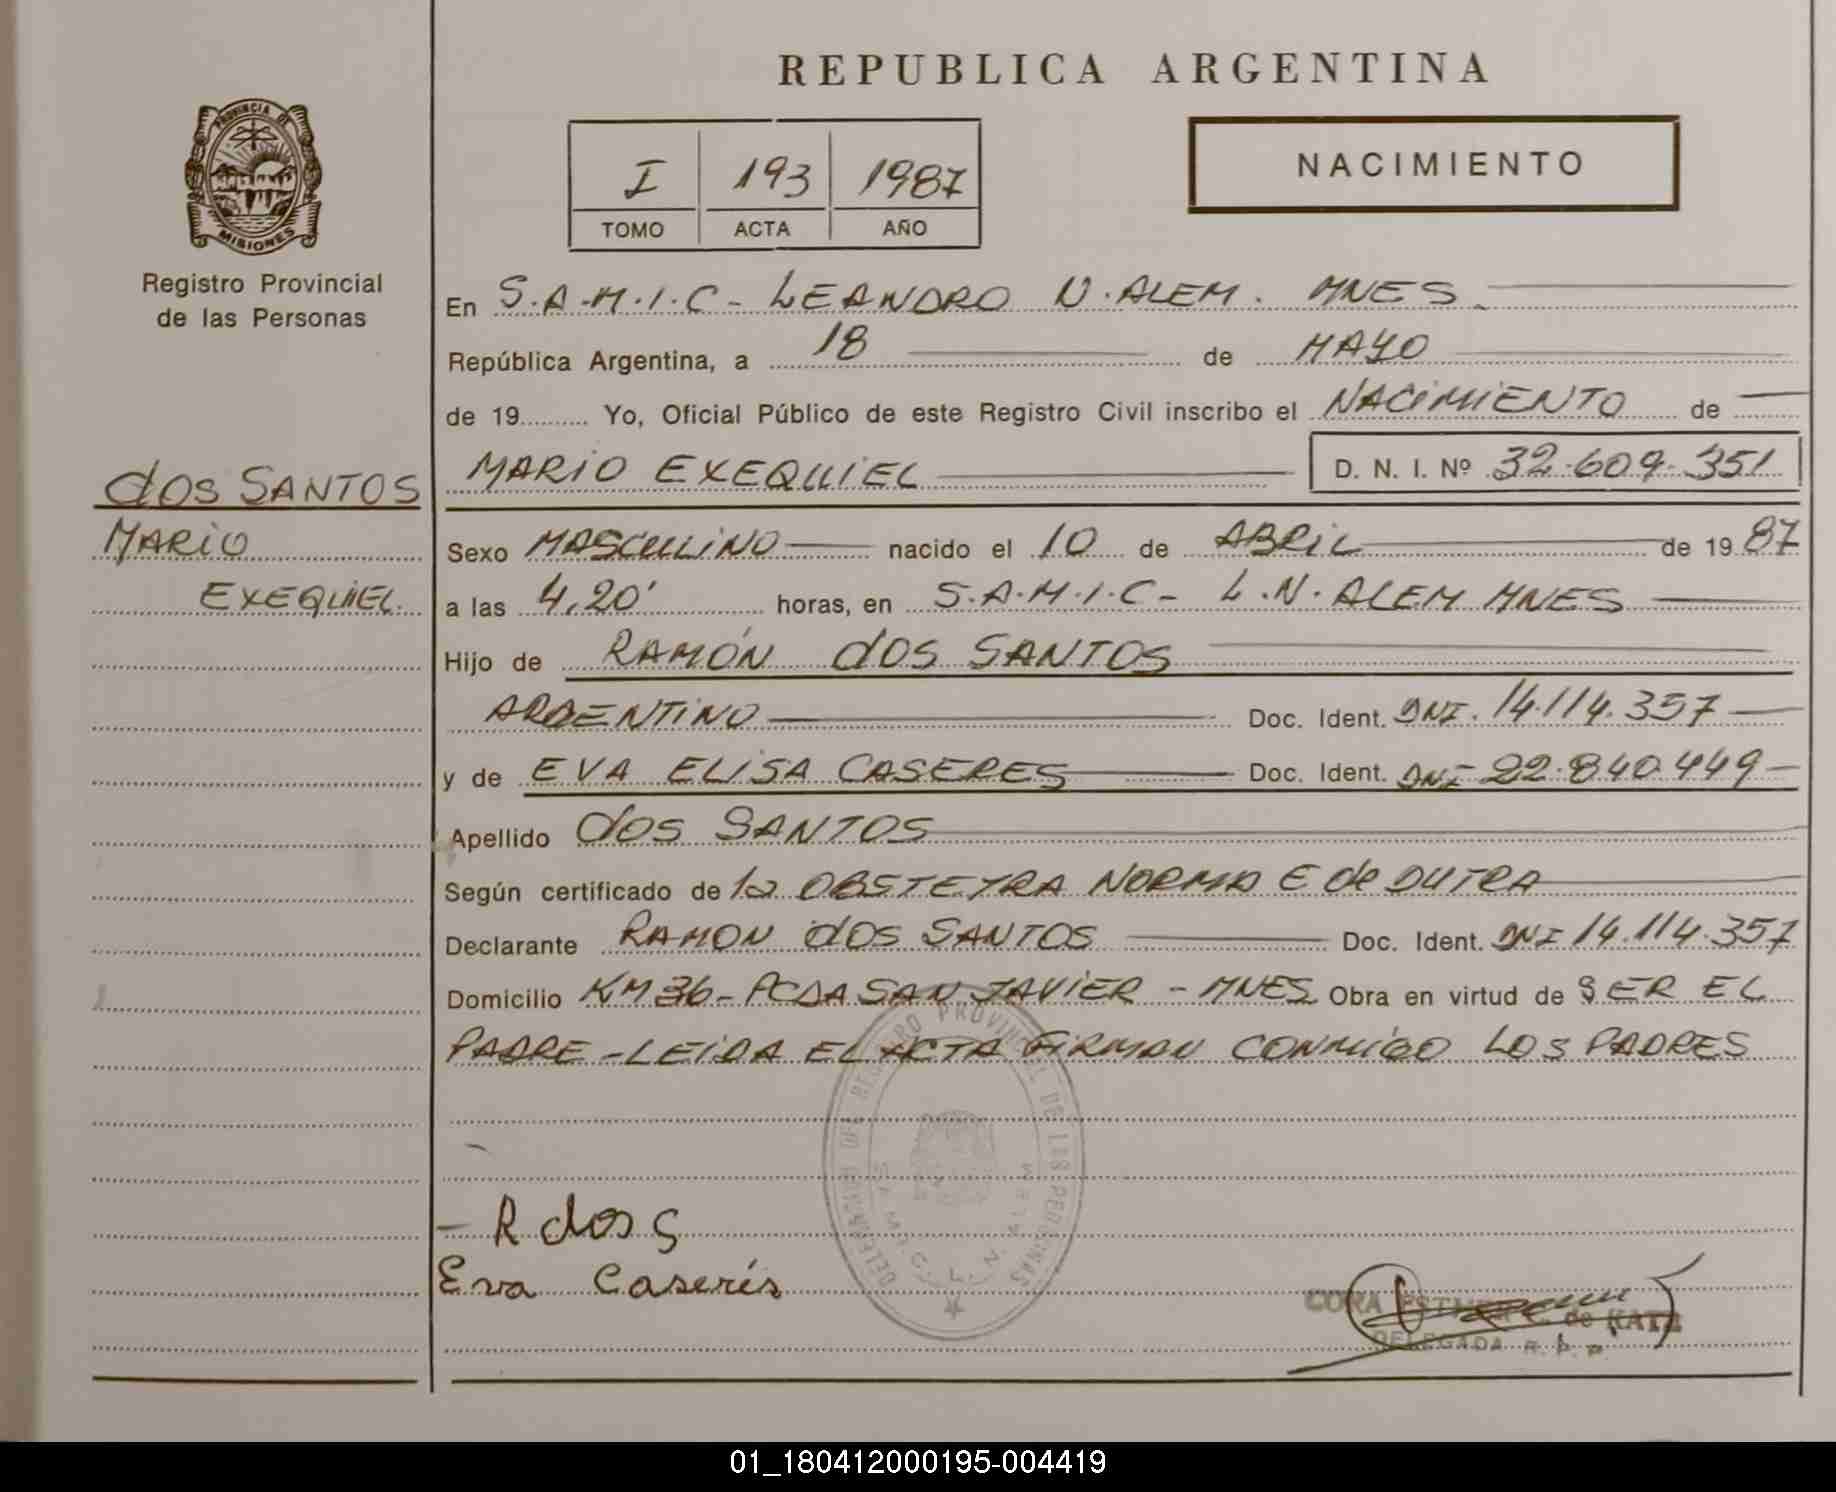 REPUBLICA ARGENTINA
PROVINCIA DE
MISIONES
Registro Provincial
de las Personas
I 193 1987
TOMO ACTA AÑO
NACIMIENTO
En S.A.M.I.C - LEANDRO N. ALEM. MNES
República Argentina, a 18 de MAYO
de 19 Yo, Oficial Público de este Registro Civil inscribo el NACIMIENTO de
dos SANTOS
MARIO
EXEQUIEL
MARIO EXEQUIEL D. N. I. Nº 32.609.351
Sexo MASCULINO nacido el 10 de ABRIL de 19 87
a las 4,20' horas, en S.A.M.I.C - L.N. ALEM MNES
Hijo de RAMÓN dos SANTOS
ARGENTINO Doc. Ident. DNI. 14.114.357
y de EVA ELISA CASERES Doc. Ident. DNI 22.840.449
Apellido dos SANTOS
Según certificado de la OBSTETRA NORMA E de DUTRA
Declarante RAMON dos SANTOS Doc. Ident. DNI 14.114.357
Domicilio KM 36 - PCDA SAN JAVIER - MNES Obra en virtud de SER EL
PADRE - LEIDA EL ACTA FIRMAN CONMIGO LOS PADRES
DELEGACION DEL REGISTRO PROVINCIAL DE LAS PERSONAS
S.A.M.I.C. L.N. ALEM
- R dos S
Eva Caserés
CORA ESTHER C. de KATZ
DELEGADA R. P. P.
01_180412000195-004419